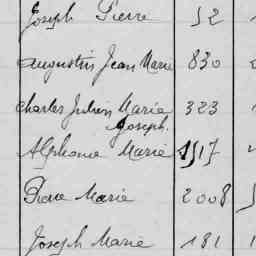 Joseph Pierre 52
Augustin Jean Marie 830
Charles Julien Marie 323
Joseph.
Alphonse Marie 1517
Pierre Marie 2008
Joseph Marie 181